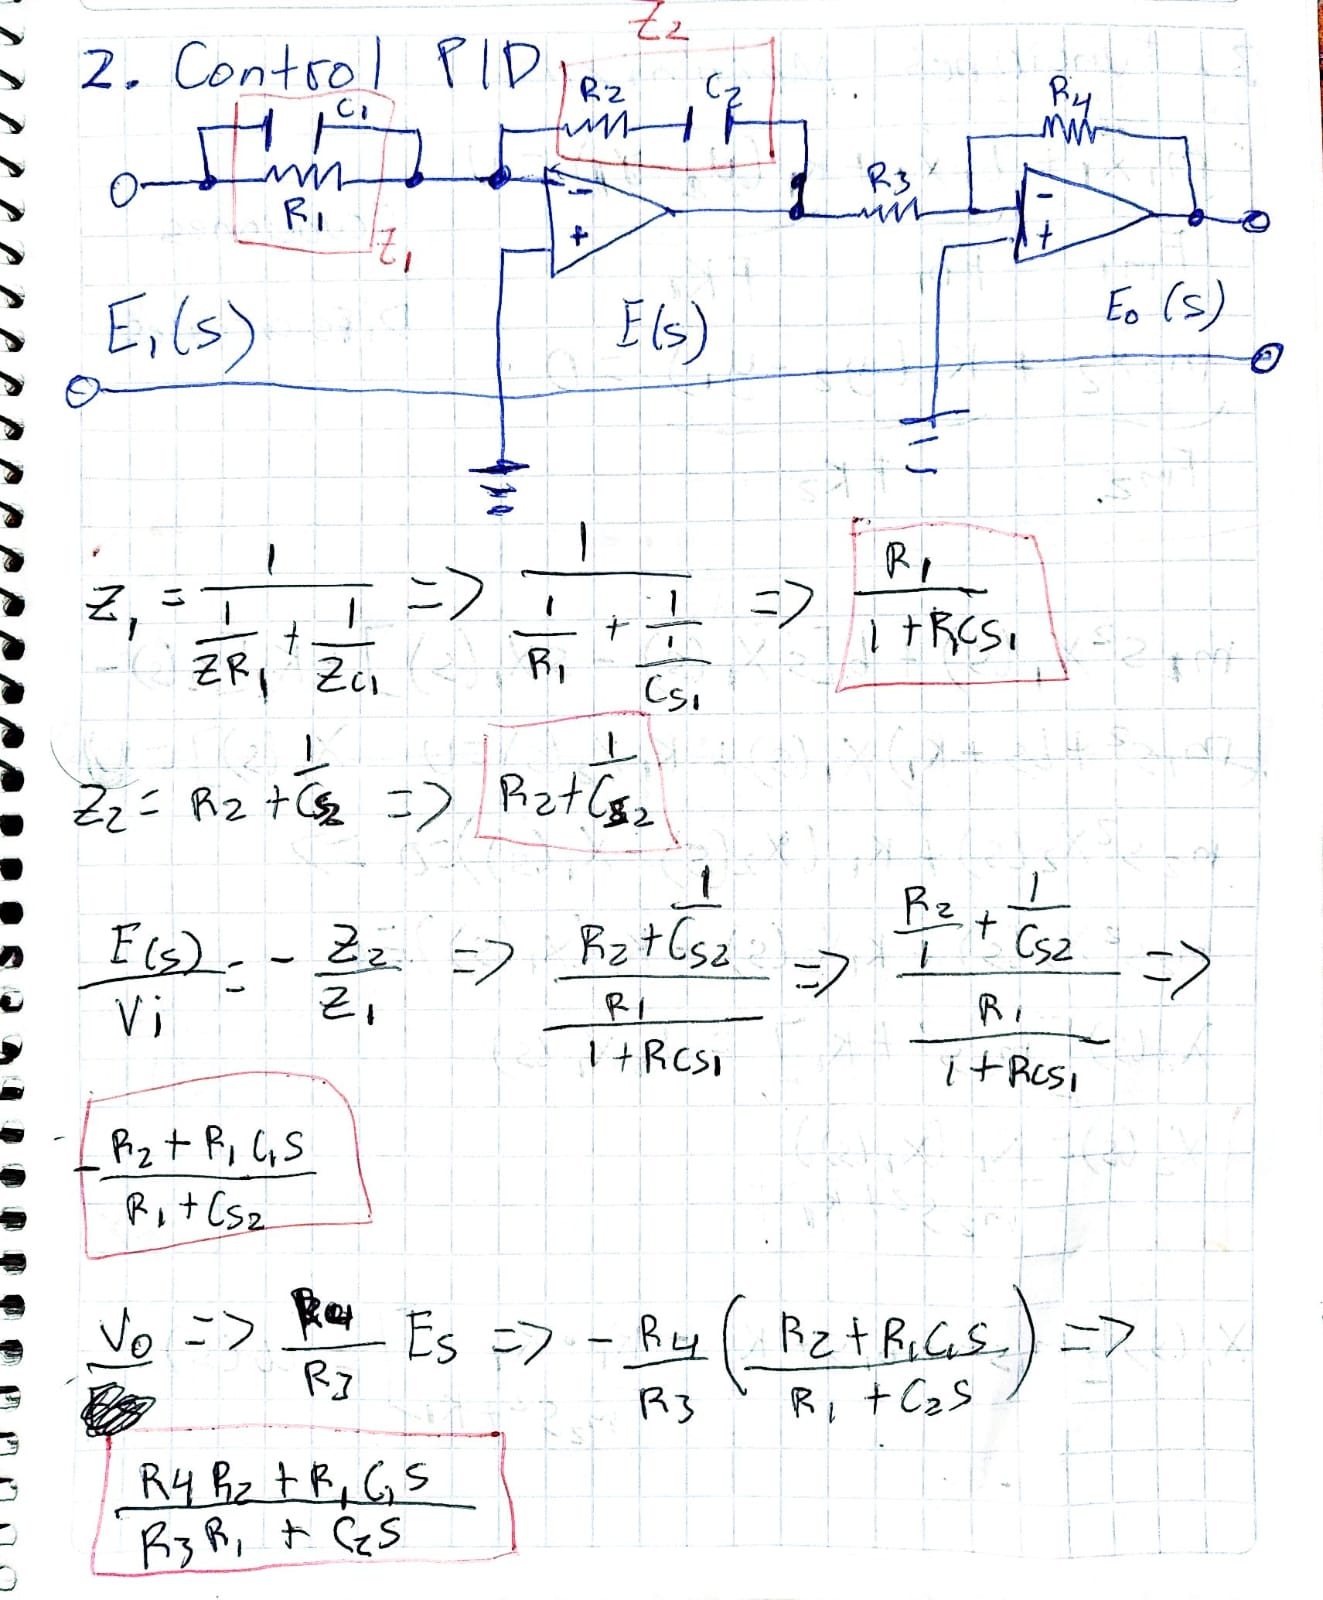 Z2
2. Control PID
C1 R2 C2 R4
R1 Z1 - + R3 - +
E1(s) E(s) Eo(s)
Z1 = 1 / (1/ZR1 + 1/ZC1) => 1 / (1/R1 + 1/(1/CS1)) => R1 / (1 + R1CS1)
Z2 = R2 + 1/CS2 => R2 + 1/CS2
E(s)/Vi = - Z2/Z1 => (R2 + 1/CS2) / (R1 / (1 + RCS1)) => (R2/1 + 1/CS2) / (R1 / (1 + RCS1)) =>
- (R2 + R1C1S) / (R1 + CS2)
Vo => R4/R3 ES => - R4/R3 ((R2 + R1C1S) / (R1 + C2S)) =>
(R4R2 + R1C1S) / (R3R1 + C2S)